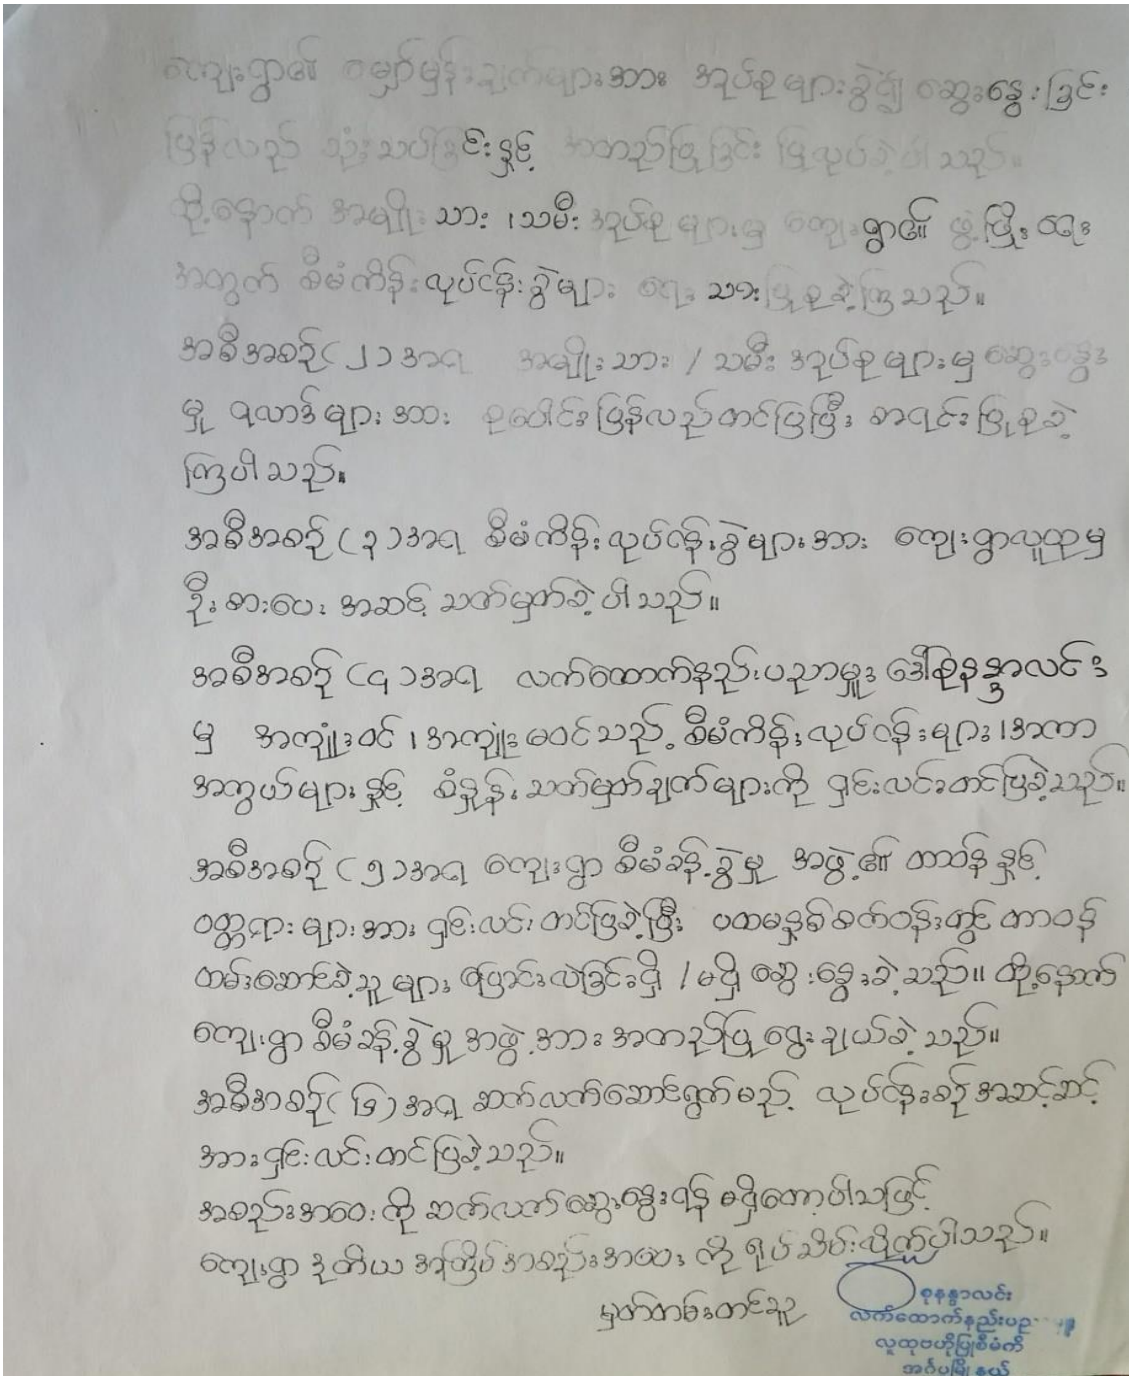 ကျေးရွာ၏ မျှော်မှန်းချက်များအား အုပ်စုများခွဲ၍ ဆွေးနွေးခြင်း
ပြန်လည် သုံးသပ်ခြင်းနှင့် အတည်ပြုခြင်း ပြုလုပ်ခဲ့ပါသည်။
ထို့နောက် အမျိုးသား ၊သမီး အုပ်စုများမှ ကျေးရွာ၏ ဖွံ့ဖြိုးရေး
အတွက် စီမံကိန်းလုပ်ငန်းခွဲများ ရေးသားပြုစုခဲ့ကြသည်။
အစီအစဉ်(၂)အရ အမျိုးသား / သမီး အုပ်စုများမှ ဆွေးနွေး
မှု ရလာဒ်များအား စုပေါင်းပြန်လည်တင်ပြပြီး စာရင်းပြုစုခဲ့
ကြပါသည်။
အစီအစဉ်(၃)အရ စီမံကိန်းလုပ်ငန်းခွဲများအား ကျေးရွာလူထုမှ
ဦးစားပေးအဆင့် သတ်မှတ်ခဲ့ပါသည်။
အစီအစဉ်(၄)အရ လက်ထောက်နည်းပညာမှူး ဒေါ်စုနန္ဒာလင်း
မှ အကျုံးဝင် ၊အကျုံးမဝင်သည့် စီမံကိန်းလုပ်ငန်းများ ၊အကာ
အကွယ်များနှင့် စံနှုန်းသတ်မှတ်ချက်များကို ရှင်းလင်းတင်ပြခဲ့သည်။
အစီအစဉ်(၅)အရ ကျေးရွာ စီမံခန့်ခွဲမှု အဖွဲ့၏ တာဝန်နှင့်
ဝတ္တရားများအား ရှင်းလင်းတင်ပြခဲ့ပြီး ပထမနှစ်စက်ဝန်းတွင် တာဝန်
ထမ်းဆောင်ခဲ့သူများ ပြောင်းလဲခြင်းရှိ / မရှိ ဆွေးနွေးခဲ့သည်။ ထို့နောက်
ကျေးရွာ စီမံခန့်ခွဲမှု အဖွဲ့အား အတည်ပြု ရွေးချယ်ခဲ့သည်။
အစီအစဉ်(၆)အရ ဆက်လက်ဆောင်ရွက်မည့် လုပ်ငန်းစဉ်အဆင့်ဆင့်
အားရှင်းလင်းတင်ပြခဲ့သည်။
အစည်းအဝေးကို ဆက်လက်ဆွေးနွေးရန် မရှိတော့ပါသဖြင့်
ကျေးရွာ ဒုတိယ အကြိမ်အစည်းအဝေးကို ရုပ်သိမ်းလိုက်ပါသည်။
မှတ်တမ်းတင်သူ
စုနန္ဒာလင်း
လက်ထောက်နည်းပညာ
လူထုဗဟိုပြုစီမံကိ
အင်္ဂပူမြို့နယ်